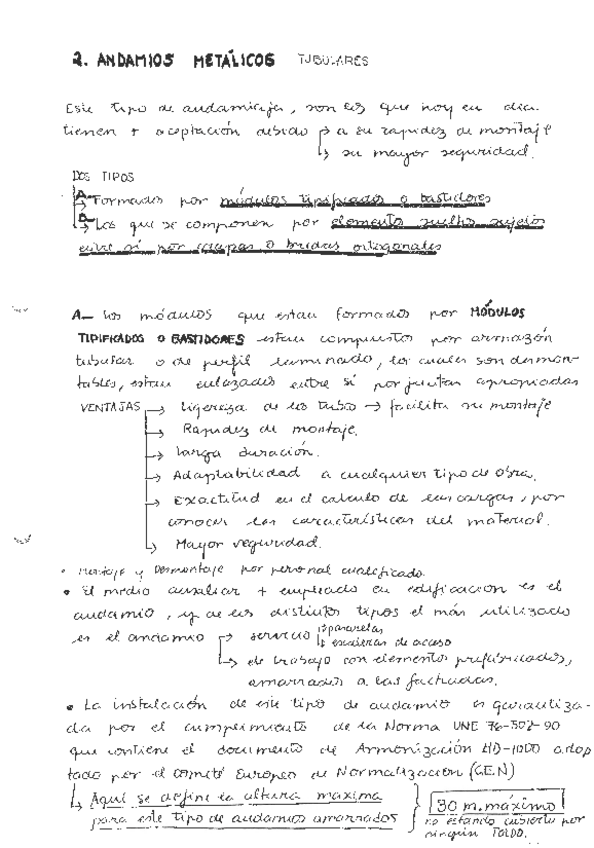 2. ANDAMIOS METÁLICOS TUBULARES
Este tipo de andamiaje, son los que hoy en dia
tienen + aceptación debido → a su rapidez de montaje
↳ su mayor seguridad.
DOS TIPOS
A→ Formados por módulos tipificados o bastidores
B→ Los que se componen por elementos sueltos sujetos
entre sí por grapas o bridas ortogonales
A_ Los módulos que estan formados por MÓDULOS
TIPIFICADOS O BASTIDORES estan compuestos por armazón
tubular o de perfil laminado, los cuales son desmon-
tables, estan enlazados entre sí por juntas apropiadas
VENTAJAS → Ligereza de los tubos → facilita su montaje
→ Rapidez de montaje.
→ Larga duración.
→ Adaptabilidad a cualquier tipo de obra.
→ Exactitud en el calculo de las cargas, por
conocer las características del material.
↳ Mayor seguridad.
• Montaje y Desmontaje por personal cualificado
• El medio auxiliar + empleado en edificación es el
andamio, y de los distintos tipos el más utilizado
es el andamio → servicio → pasarelas
↳ escaleras de acceso
↳ de trabajo con elementos prefabricados,
amarrados a las fachadas.
• La instalación de este tipo de andamio es garantiza-
da por el cumplimiento de la Norma UNE 76-502-90
que contiene el documento de Armonización HD-1000 adop
tado por el comité Europeo de Normalización (C.E.N)
↳ Aquí se define la altura maxima
para este tipo de andamios amarrados } 30 m. máximo
no estando cubierto por
ningún TOLDO.